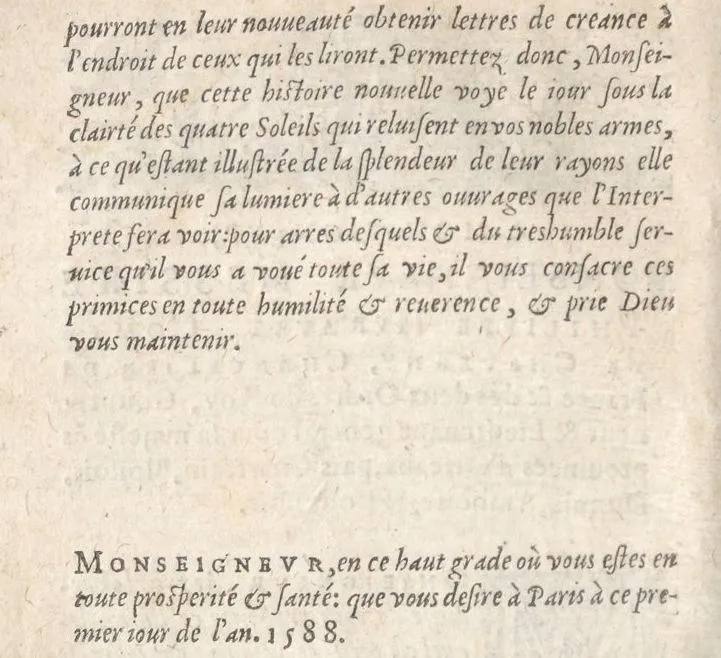 pourront en leur nouueauté obtenir lettres de creance à
l'endroit de ceux qui les liront. Permettez donc, Monſei-
gneur, que cette hiſtoire nouuelle voye le iour ſous la
clairté des quatre Soleils qui reluiſent en vos nobles armes,
à ce qu'eſtant illuſtrée de la ſplendeur de leur rayons elle
communique ſa lumiere à d'autres ouurages que l'Inter-
prete fera voir: pour arres deſquels & du treshumble ſer-
uice qu'il vous a voué toute ſa vie, il vous conſacre ces
primices en toute humilité & reuerence, & prie Dieu
vous maintenir.
MONSEIGNEVR, en ce haut grade où vous eſtes en
toute proſperité & ſanté: que vous deſire à Paris à ce pre-
mier iour de l'an. 1588.